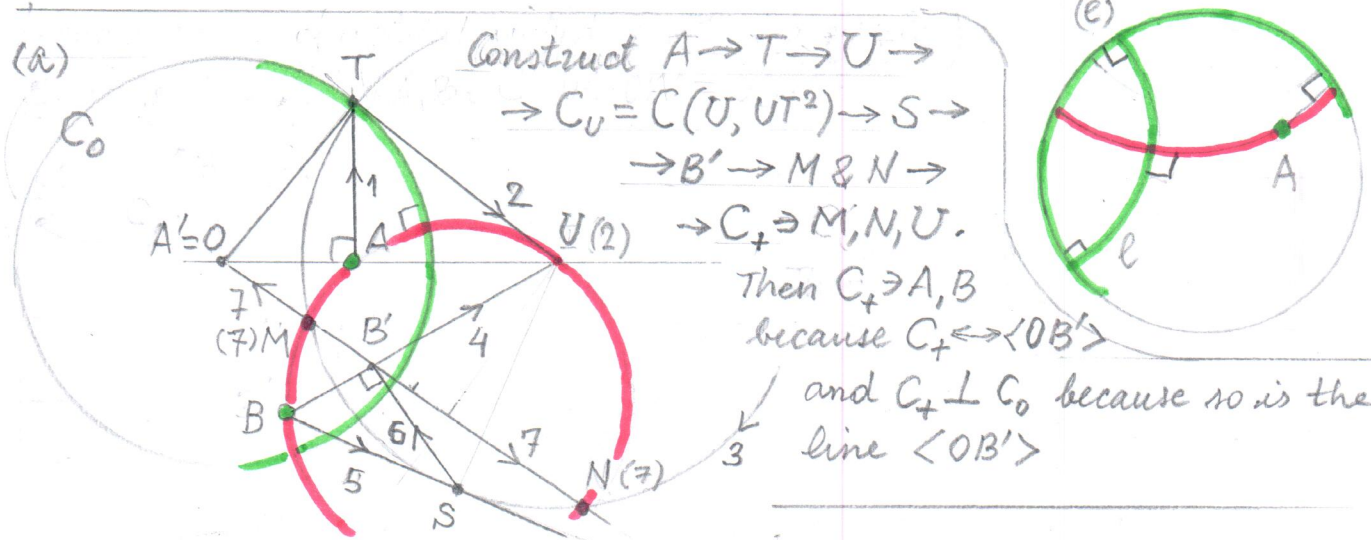 (a)
T
C₀
1
2
A'=0
A
U(2)
7
(7)M
B'
4
B
6
5
7
3
N(7)
S
Construct A→T→U→
→ Cᵤ = C(U, UT²)→S→
→B'→ M & N →
→ C₊∋M,N,U.
Then C₊∋A,B
because C₊↔<OB'>
and C₊⊥C₀ because so is the
line <OB'>
(e)
A
l